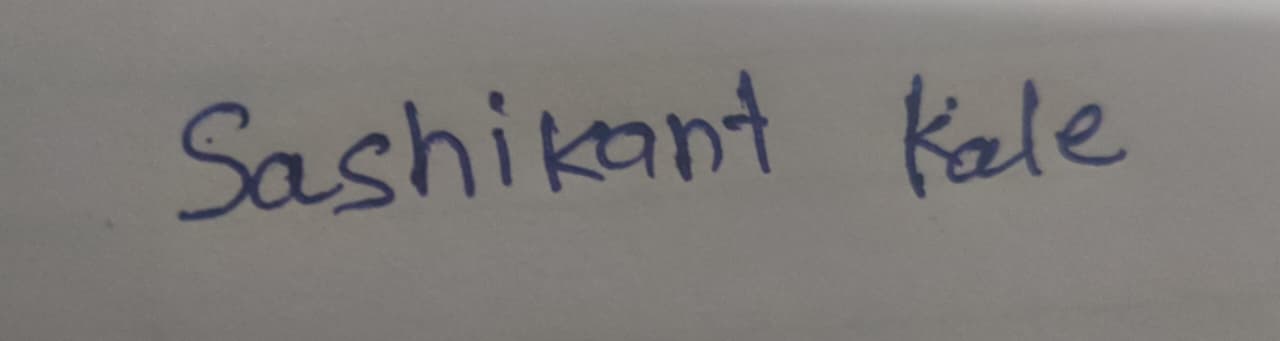 Sashikant Kale